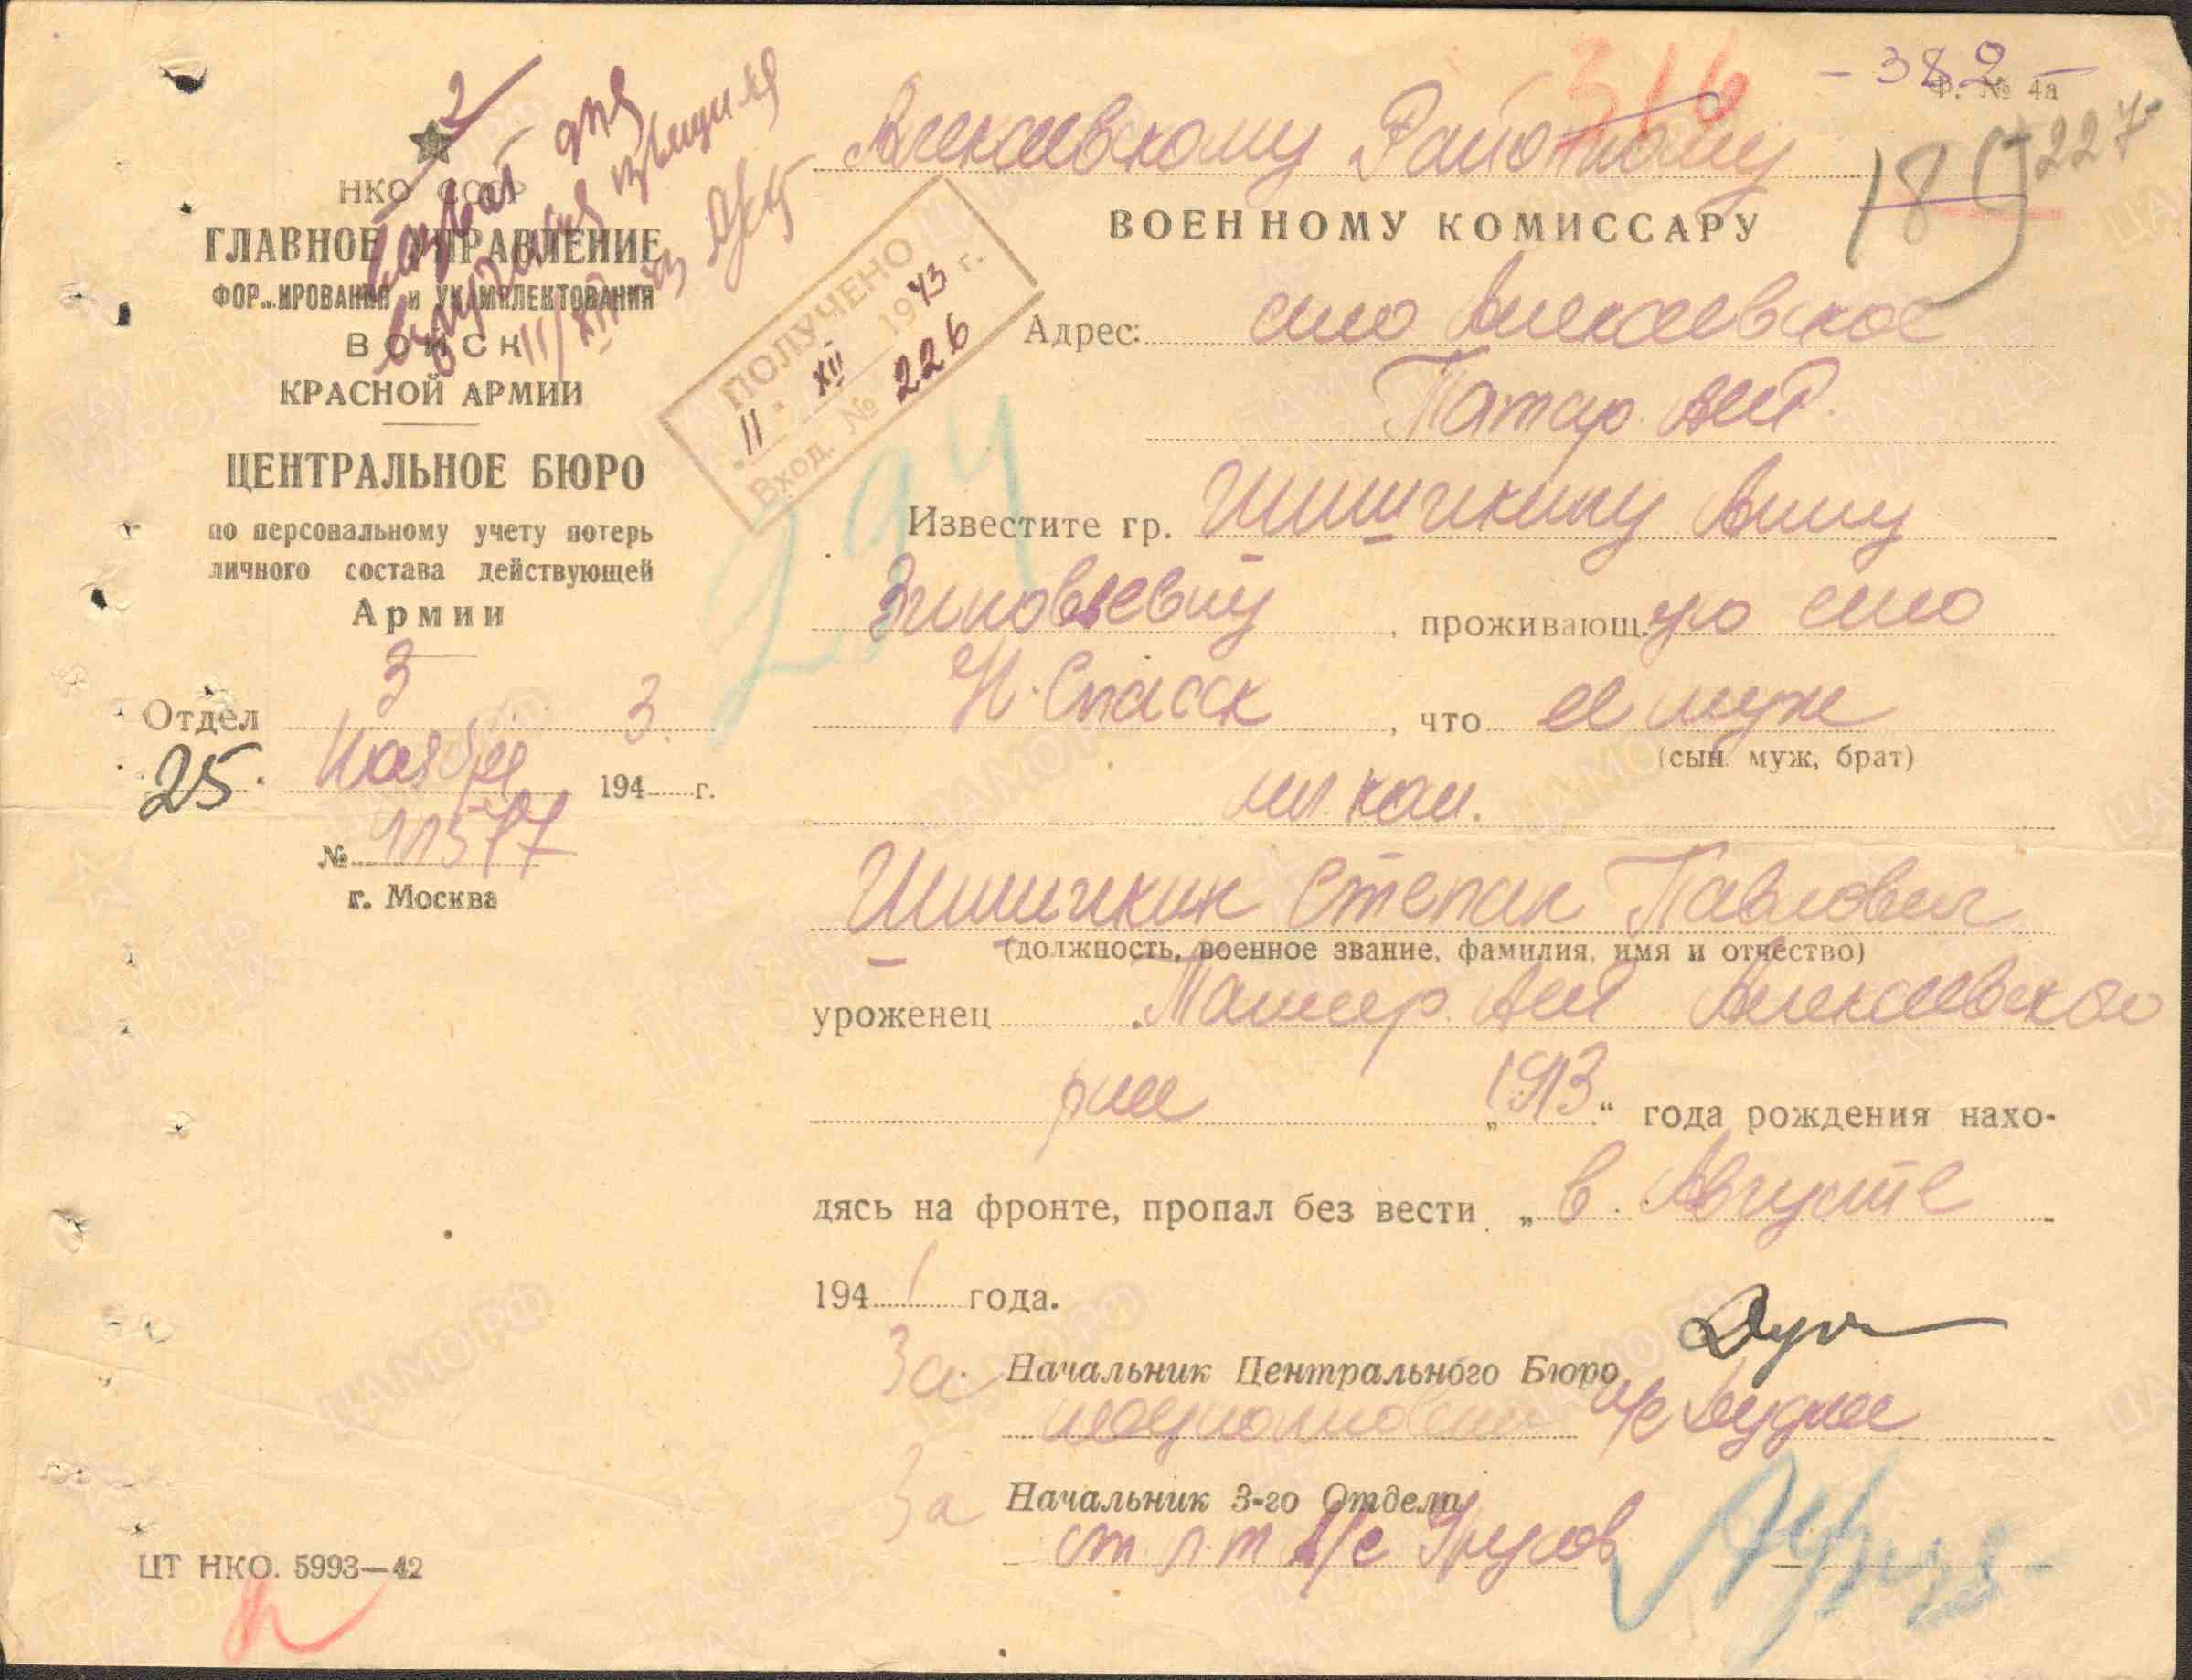 - 382 -
Ф. № 4а
316
189
227
2
НКО СССР
ГЛАВНОЕ УПРАВЛЕНИЕ
ФОРМИРОВАНИЯ и УКОМПЛЕКТОВАНИЯ
ВОЙСК
КРАСНОЙ АРМИИ
ЦЕНТРАЛЬНОЕ БЮРО
по персональному учету потерь
личного состава действующей
Армии
Отдел 3
25. Ноября 1943 г.
№ 11577
г. Москва
для
извещения
11/XII 43
ПОЛУЧЕНО
11. XII 1943 г.
Вход. № 226
294
Алексеевскому Районному
ВОЕННОМУ КОМИССАРУ
Адрес: село Алексеевское
Татар. АССР
Известите гр. Шишичкину Анну
Зиновьевну, проживающ.ую село
Н. Спасск, что ее муж
(сын, муж, брат)
мл. ком.
Шишичкин Степан Павлович
(должность, военное звание, фамилия, имя и отчество)
уроженец Татар. АССР Алексеевского
р-на „1913“ года рождения нахо-
дясь на фронте, пропал без вести „в Августе
1941 года.
За Начальник Центрального Бюро
За Начальник 3-го Отдела
ст л-т а/с
ЦТ НКО. 5993—42